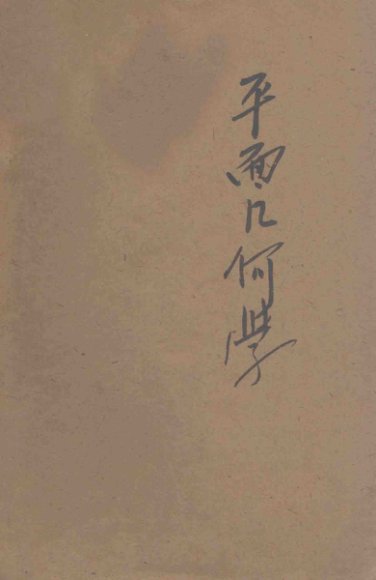 平面几何学